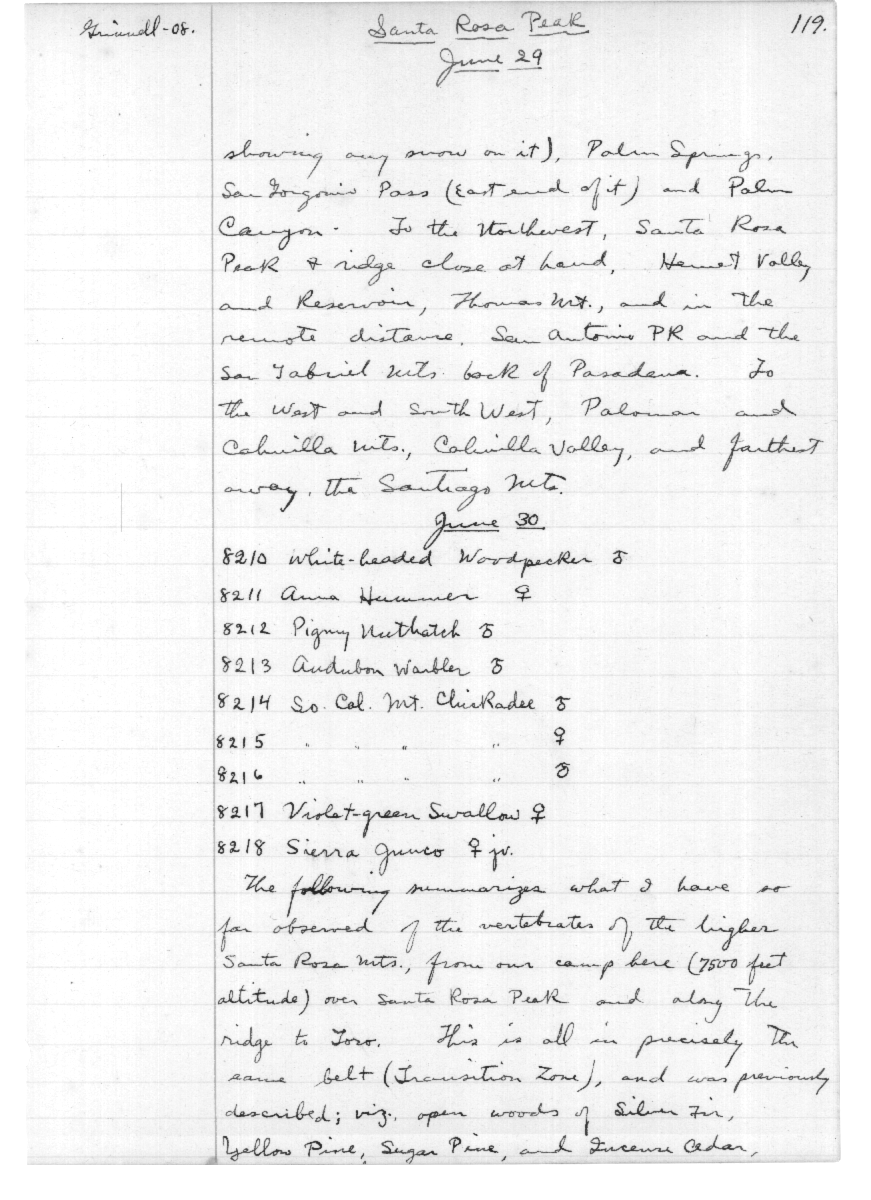 Grinnell-08.
Santa Rosa Peak
119.
June 29
showing any snow on it), Palm Springs,
San Gorgonio Pass (East end of it) and Palm
Canyon. To the Northwest, Santa Rosa
Peak & ridge close at hand, Hemet Valley
and Reservoir, Thomas Mt., and in the
remote distance, San Antonio Pk and the
San Gabriel Mts. back of Pasadena. To
the West and South West, Palomar and
Cahuilla Mts., Cahuilla Valley, and farthest
away, the Santiago Mts.
June 30
8210 White-headed Woodpecker ♂
8211 Anna Hummer ♀
8212 Pigmy Nuthatch ♂
8213 Audubon Warbler ♂
8214 So. Cal. Mt. Chickadee ♂
8215 " " " " ♀
8216 " " " " ♂
8217 Violet-green Swallow ♀
8218 Sierra Junco ♀ jv.
The following summarizes what I have so
far observed of the vertebrates of the higher
Santa Rosa Mts., from our camp here (7500 feet
altitude) over Santa Rosa Peak and along the
ridge to Toro. This is all in precisely the
same belt (Transition Zone), and was previously
described; viz., open woods of Silver Fir,
Yellow Pine, Sugar Pine, and Incense Cedar,